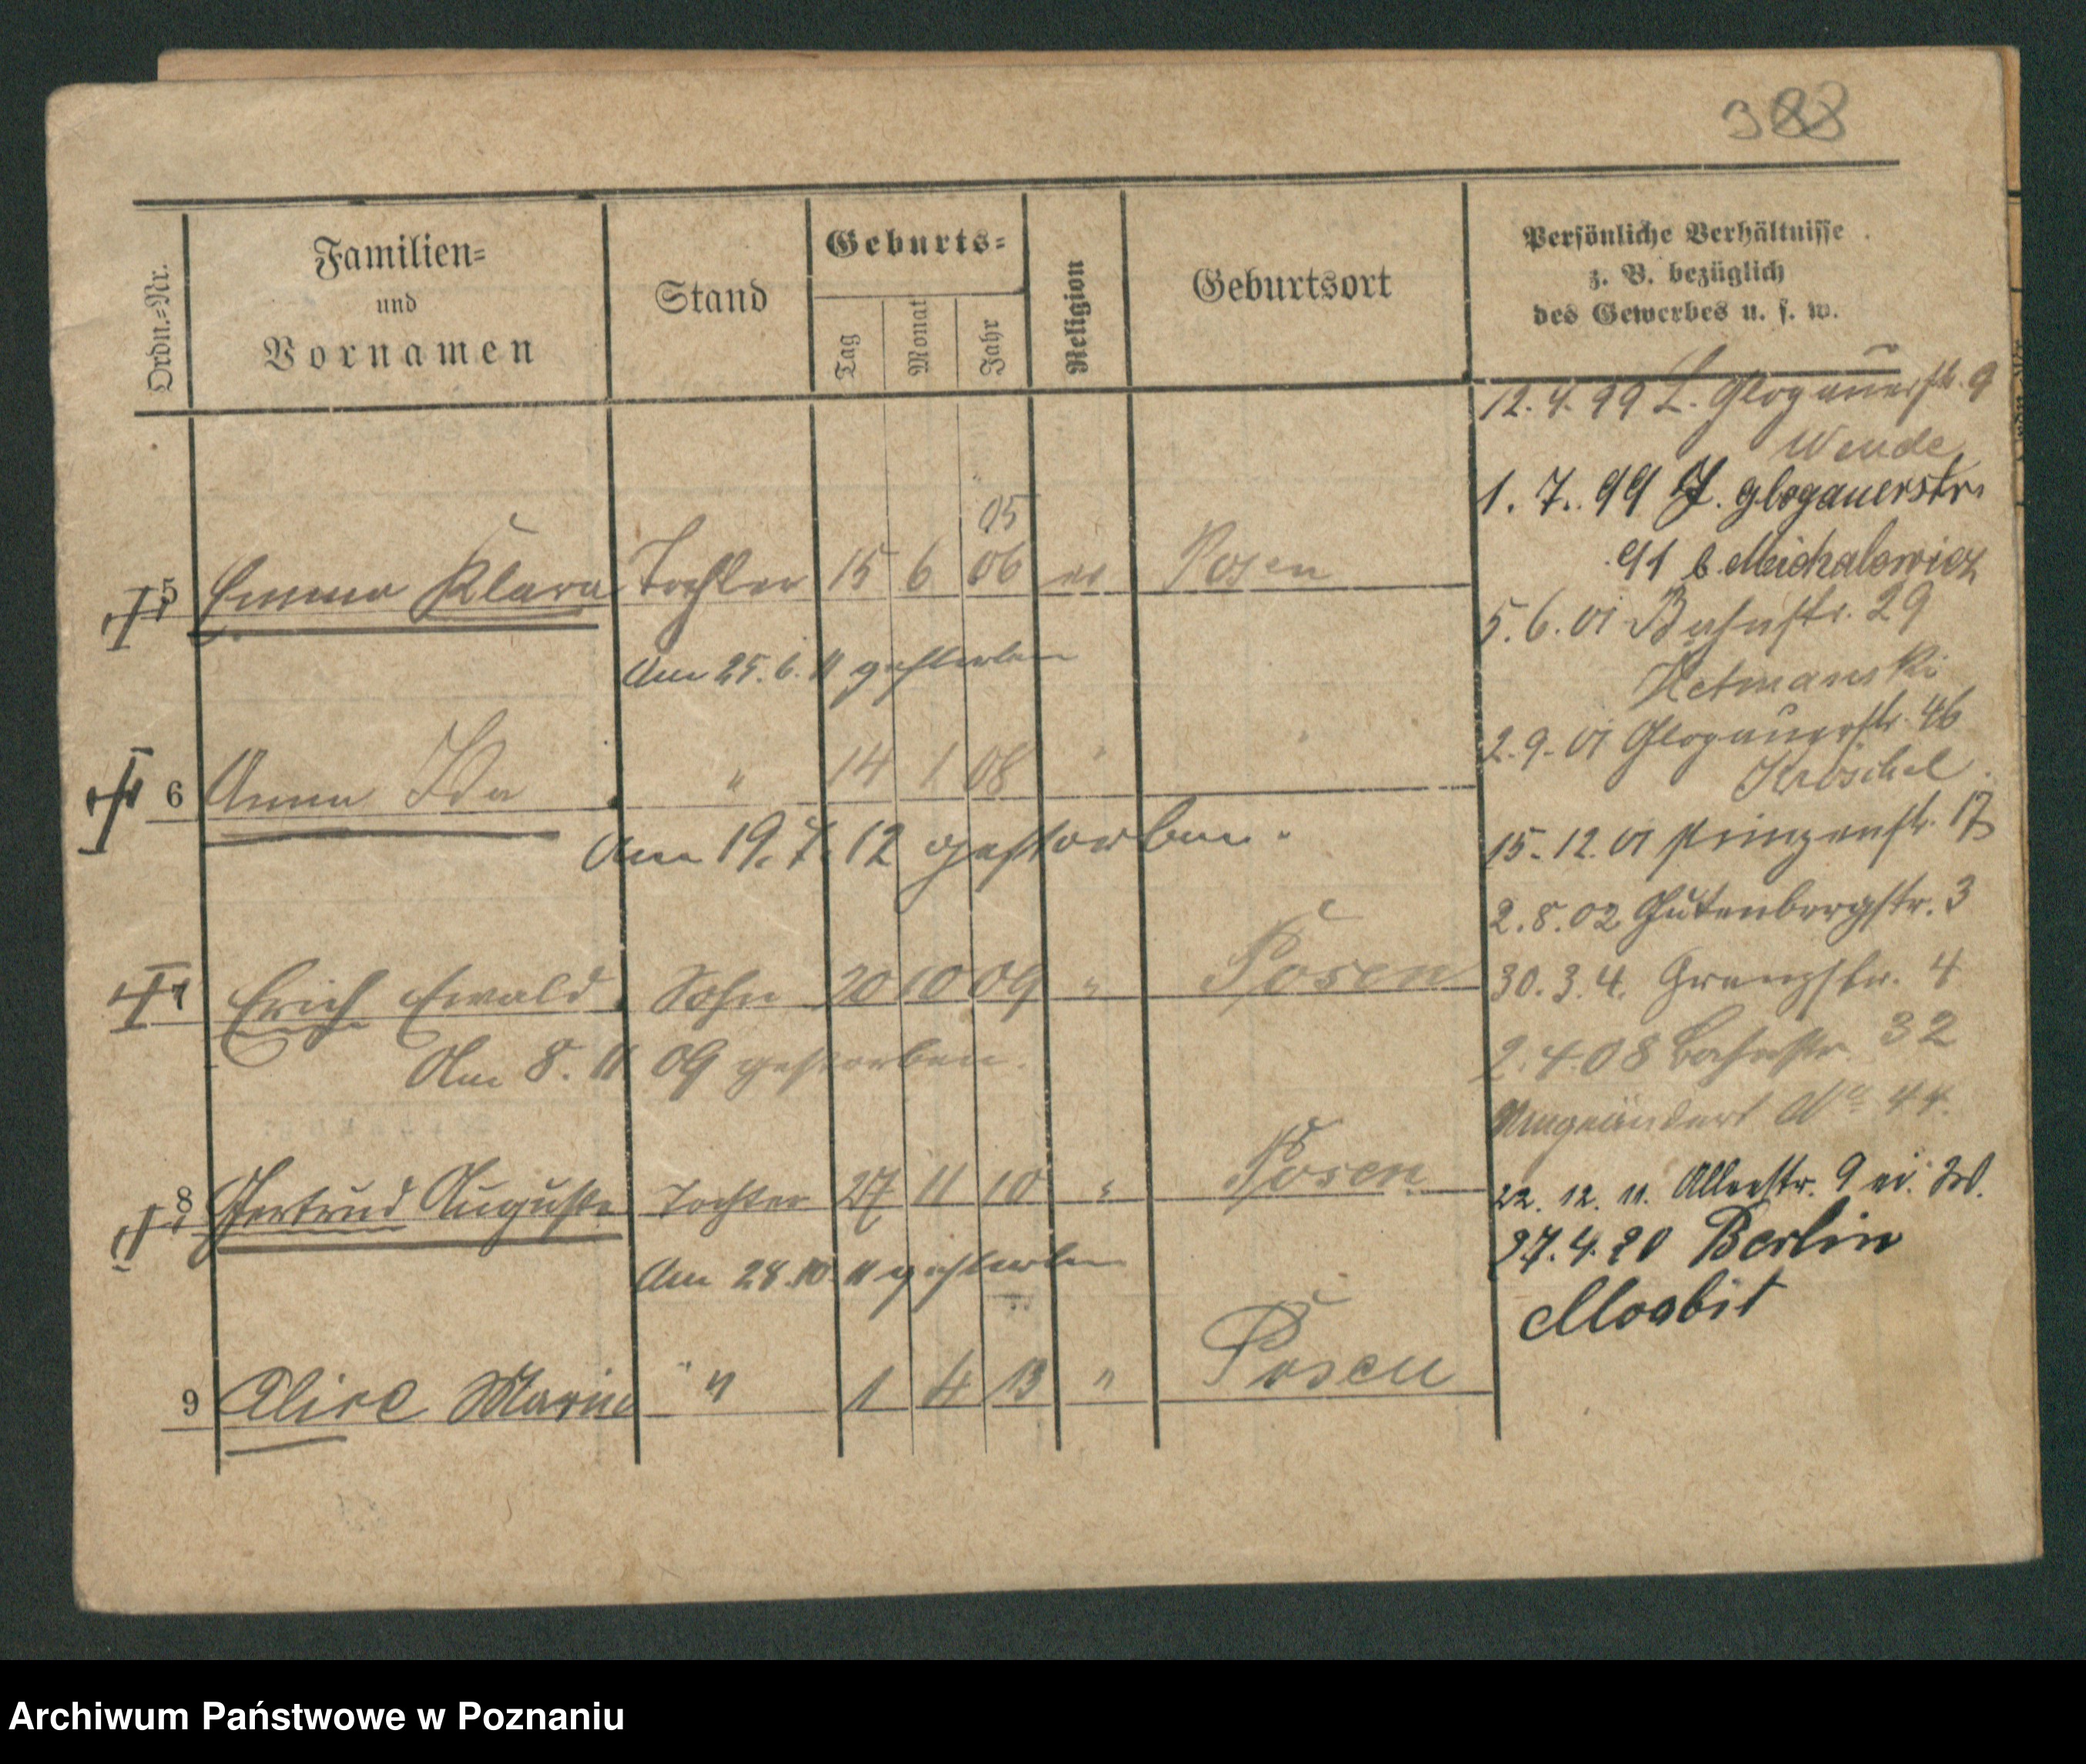 388
Ordn.-Nr.
Familien-
und
Vornamen
Stand
Geburts-
Tag
Monat
Jahr
Religion
Geburtsort
Persönliche Verhältnisse
z. B. bezüglich
des Gewerbes u. s. w.
05
5 Emma Klara Tochter 15 6 06 ev Posen
Am 25. 6. 11 gestorben
6 Anna Ida " 14 1 08 " "
Am 19. 7. 12 gestorben.
7 Erich Ewald Sohn 20 10 09 " Posen
Am 8. 11 09 gestorben.
8 Gertrud Auguste Tochter 27 11 10 " Posen
Am 28. 10. 11 gestorben
9 Alice Marie " 1 4 13 " Posen
12. 4. 99 L. Glogauerstr. 9
Wende
1. 7. 99 J. Glogauerstr.
91 b. Michalowicz
5. 6. 01 Bahnstr. 29
Hetmanski
2. 9. 01 Glogauerstr. 46
Kroschel
15. 12. 01 Prinzenstr. 17
2. 8. 02 Gutenbergstr. 3
30. 3. 4. Grenzstr. 4
2. 4. 08 Bahnstr. 32
Umgeändert No 44.
22. 12. 11. Alleestr. 9
27. 4. 20 Berlin
Moabit
Archiwum Państwowe w Poznaniu